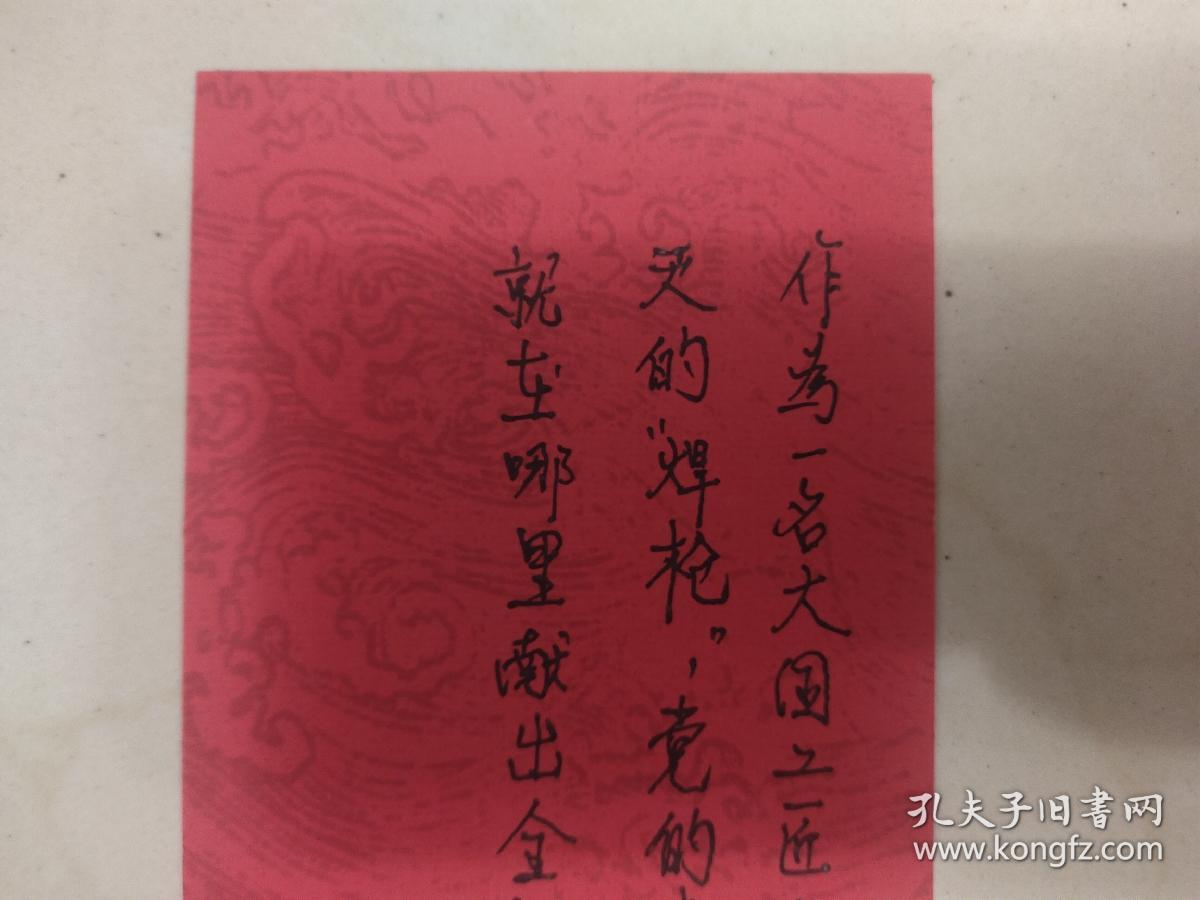 作為一名大国工匠
灭的“焊枪”，党的
就在哪里献出全
孔夫子旧书网
www.kongfz.com